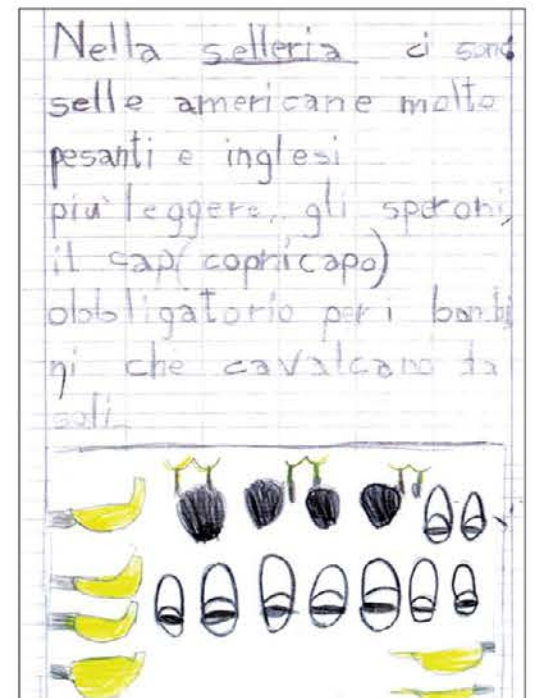 Nella selleria ci sono
selle americane molto
pesanti e inglesi
più leggere, gli speroni,
il cap (copricapo)
obbligatorio per i bambi
ni che cavalcano da
soli.